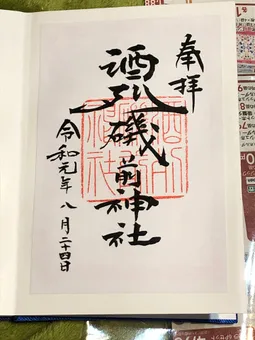 奉拝
酒列磯前神社
令和元年八月二十四日